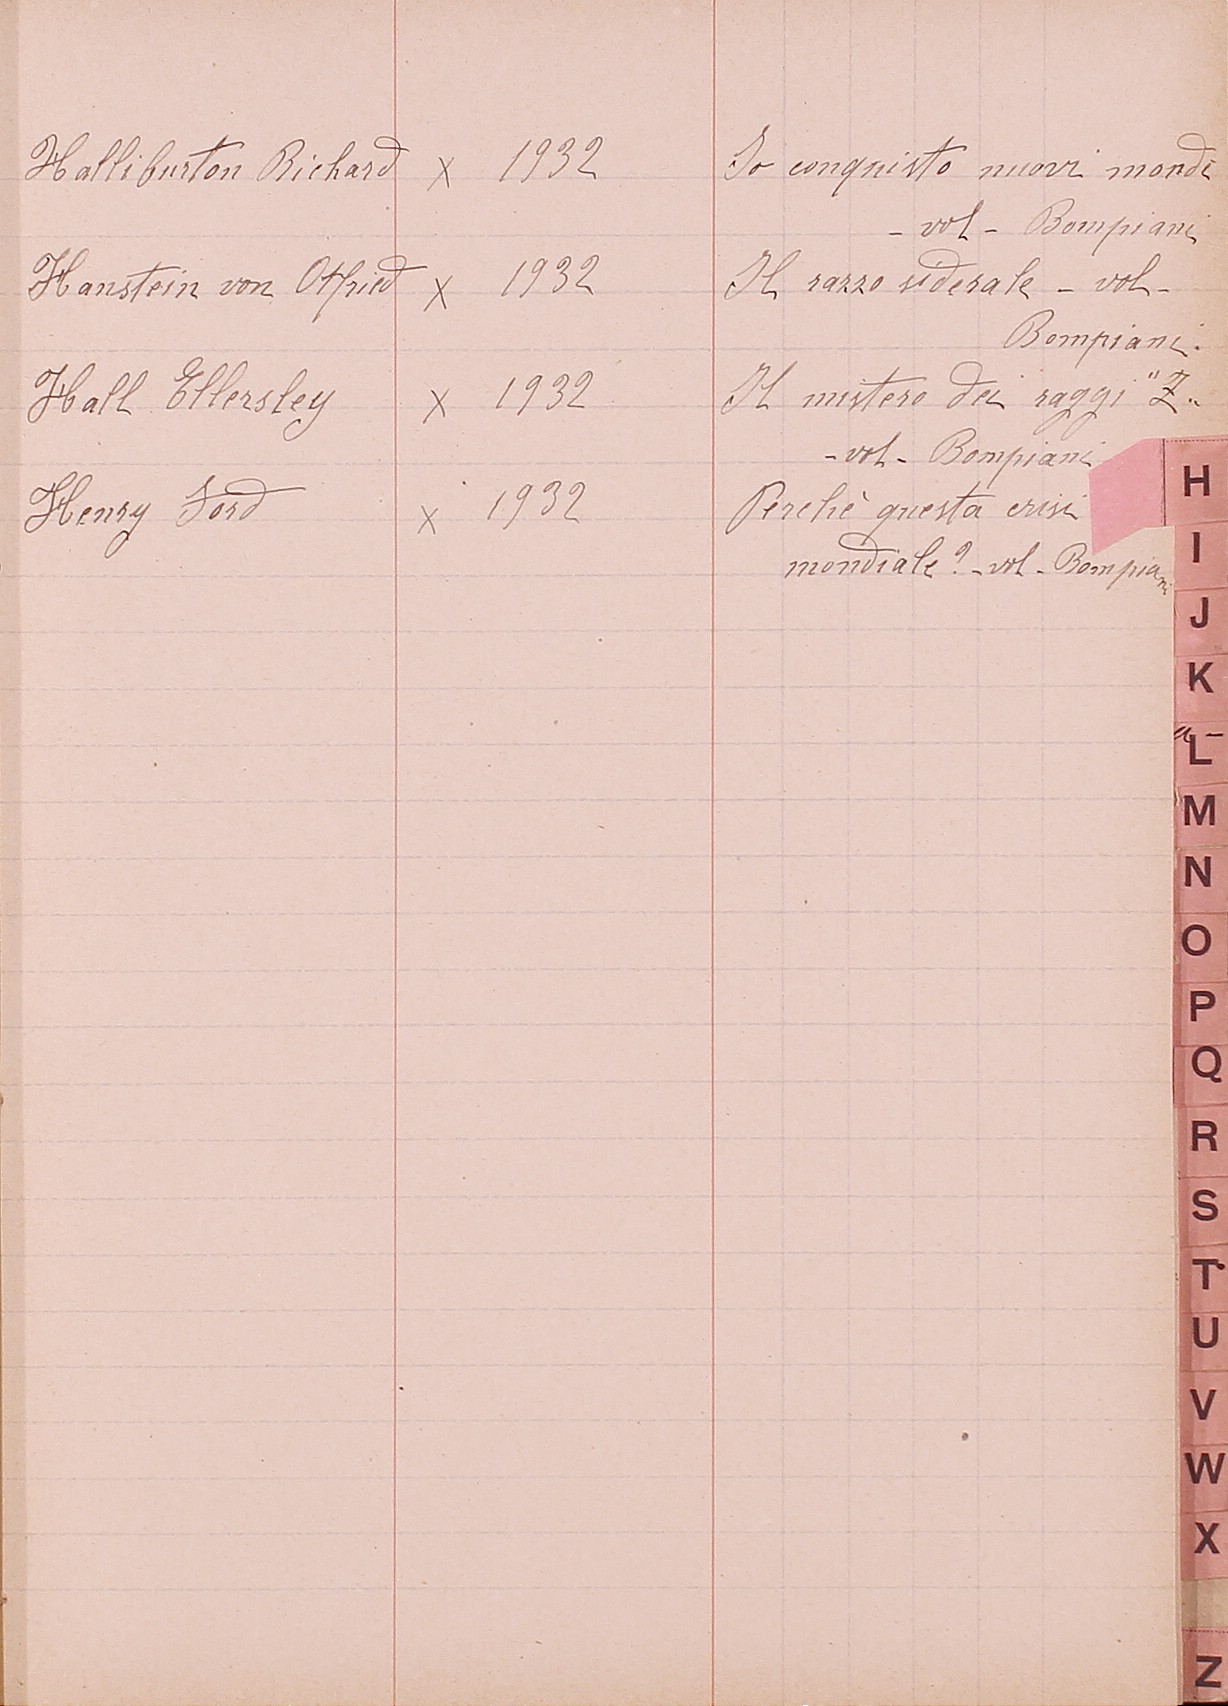 Halliburton Richard x 1932 Io conquisto nuovi mondi
- vol - Bompiani
Hanstein von Otfried x 1932 Il razzo siderale - vol -
Bompiani.
Hall Ellersley x 1932 Il mistero dei raggi "Z"
- vol - Bompiani
Henry Ford x 1932 Perchè questa crisi
mondiale? - vol - Bompiani
H
I
J
K
L
M
N
O
P
Q
R
S
T
U
V
W
X
Z